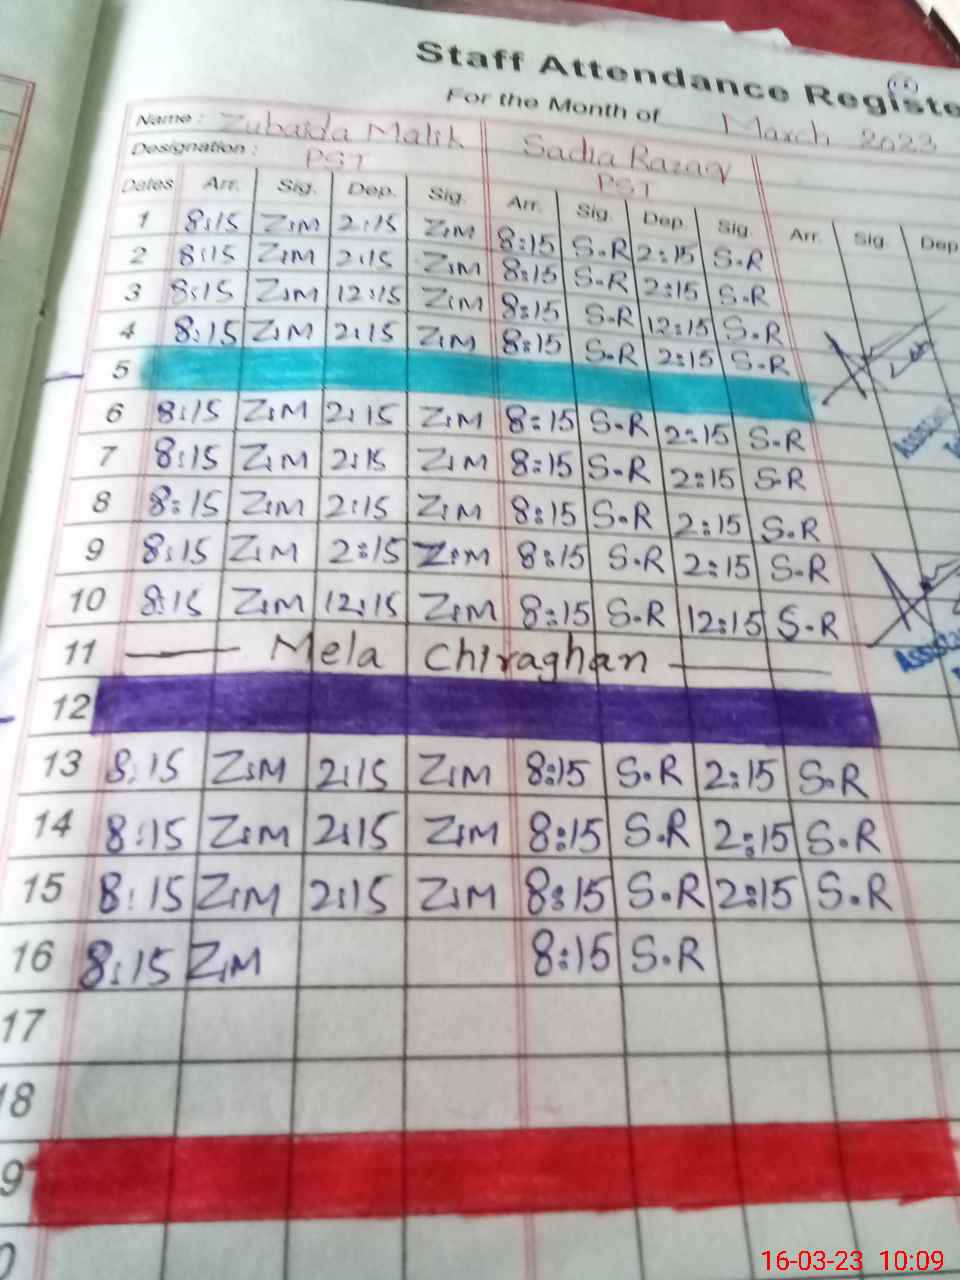 Staff Attendance Registe
For the Month of March 2023
Name : Zubaida Malik Sadia Razaq
Designation : PST PST
Dates Arr. Sig. Dep. Sig. Arr. Sig. Dep. Sig. Arr. Sig. Dep
1 8:15 Z.M 2:15 Z.M 8:15 S.R 2:15 S.R
2 8:15 Z.M 2:15 Z.M 8:15 S.R 2:15 S.R
3 8:15 Z.M 12:15 Z.M 8:15 S.R 12:15 S.R
4 8:15 Z.M 2:15 Z.M 8:15 S.R 2:15 S.R
5
6 8:15 Z.M 2:15 Z.M 8:15 S.R 2:15 S.R
7 8:15 Z.M 2:15 Z.M 8:15 S.R 2:15 S.R
8 8:15 Z.M 2:15 Z.M 8:15 S.R 2:15 S.R
9 8:15 Z.M 2:15 Z.M 8:15 S.R 2:15 S.R
10 8:15 Z.M 12:15 Z.M 8:15 S.R 12:15 S.R
11 Mela Chiraghan
12
13 8:15 Z.M 2:15 Z.M 8:15 S.R 2:15 S.R
14 8:15 Z.M 2:15 Z.M 8:15 S.R 2:15 S.R
15 8:15 Z.M 2:15 Z.M 8:15 S.R 2:15 S.R
16 8:15 Z.M 8:15 S.R
17
18
9
0
16-03-23 10:09